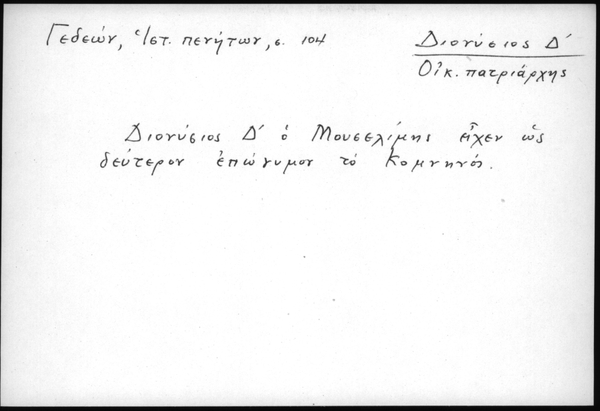 Γεδεών, Ἱστ. πενήτων, σ. 104
Διονύσιος Δ΄
Οἰκ. πατριάρχης
Διονύσιος Δ΄ ὁ Μουσελίμης εἶχεν ὡς
δεύτερον ἐπώνυμον τὸ Κομνηνός.